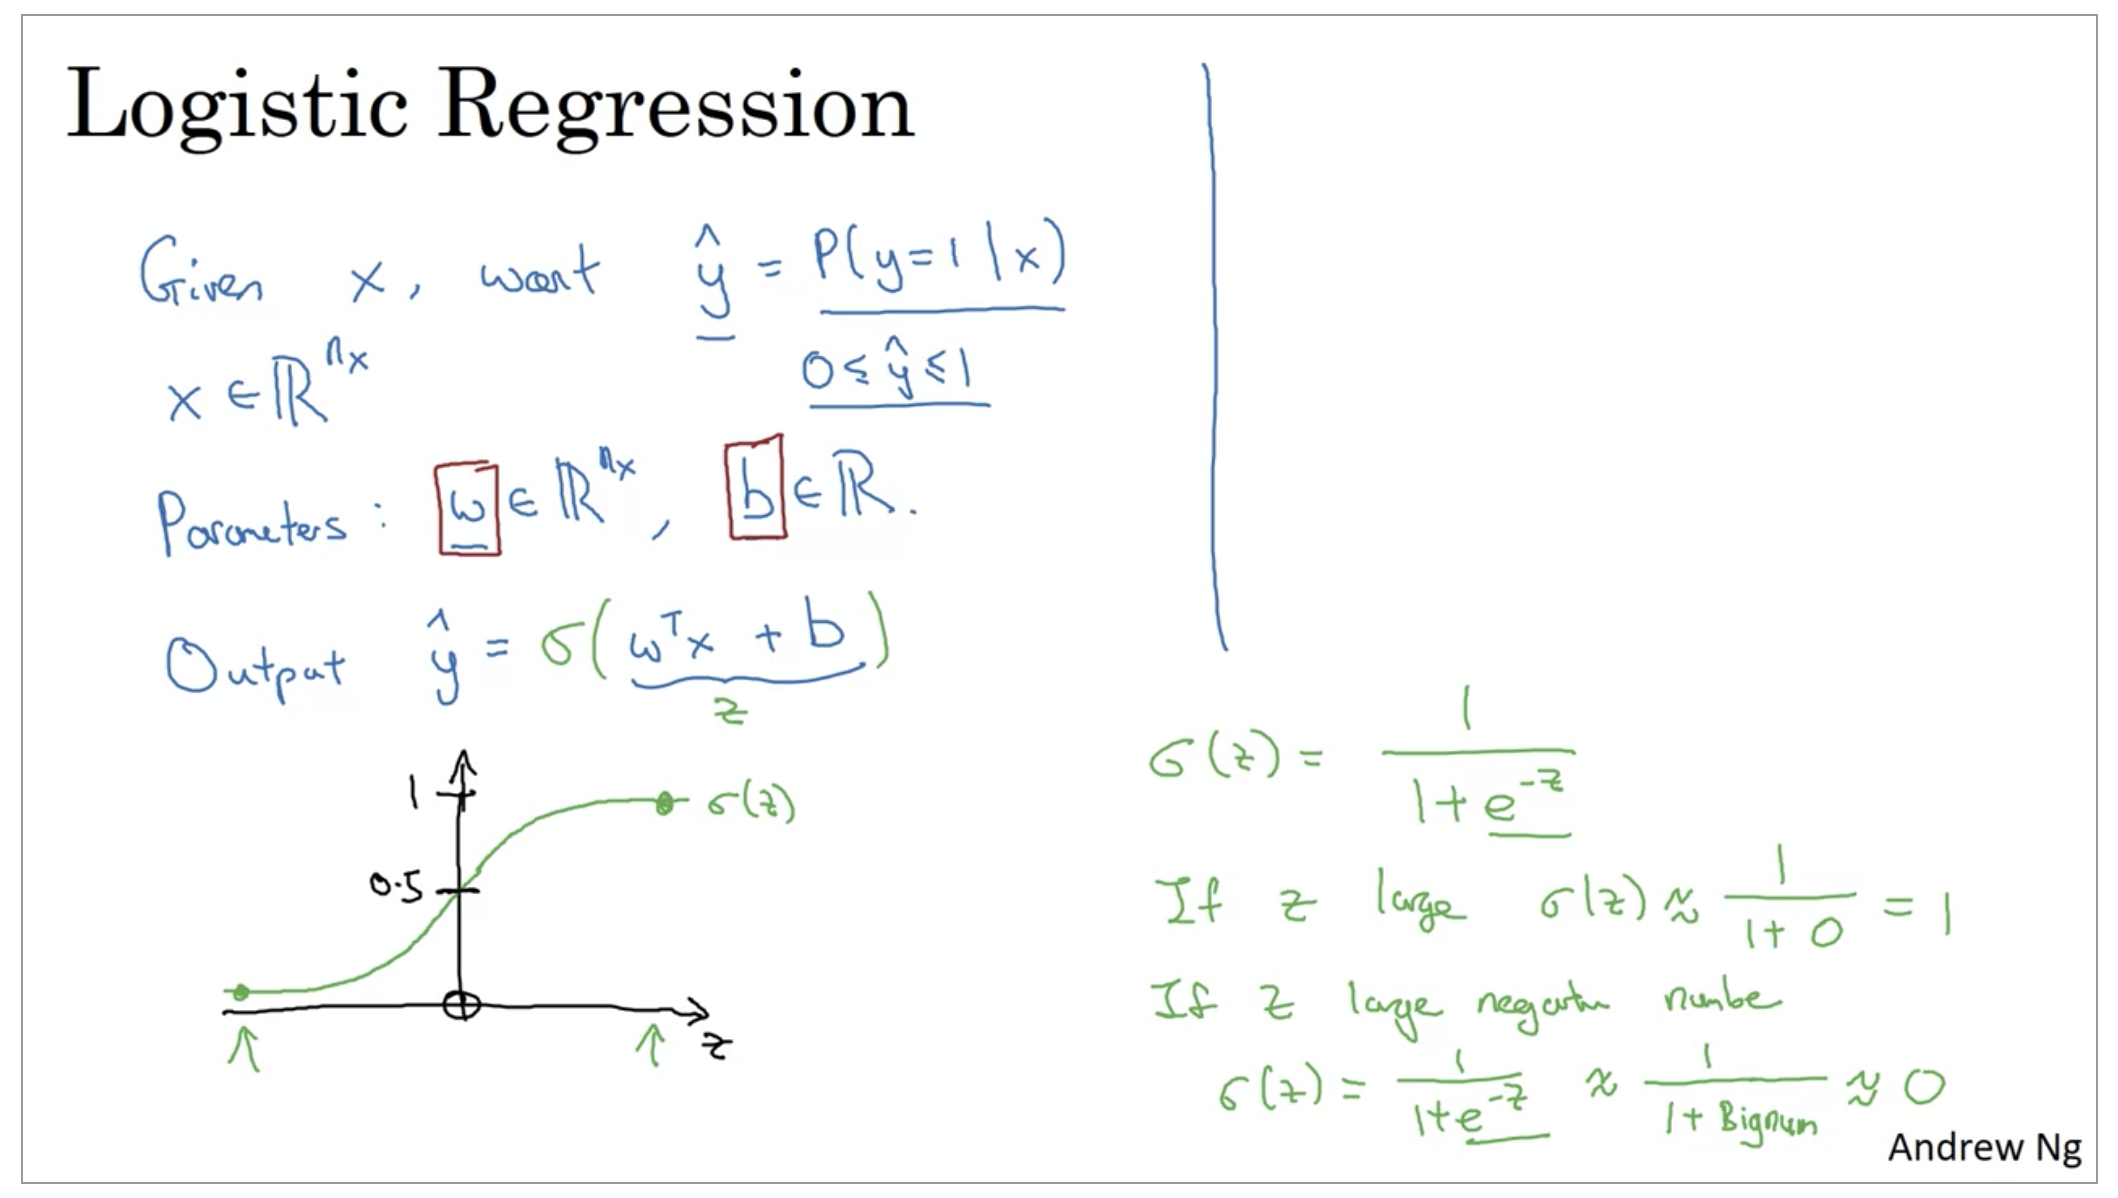 Logistic Regression
Given x, want ŷ = P(y=1 | x)
x ∈ ℝ^nx
0 ≤ ŷ ≤ 1
Parameters: w ∈ ℝ^nx, b ∈ ℝ.
Output ŷ = σ(wᵀx + b)
z
1
σ(z)
0.5
z
σ(z) = 1 / (1 + e^-z)
If z large σ(z) ≈ 1 / (1 + 0) = 1
If z large negative number
σ(z) = 1 / (1 + e^-z) ≈ 1 / (1 + Bignum) ≈ 0
Andrew Ng